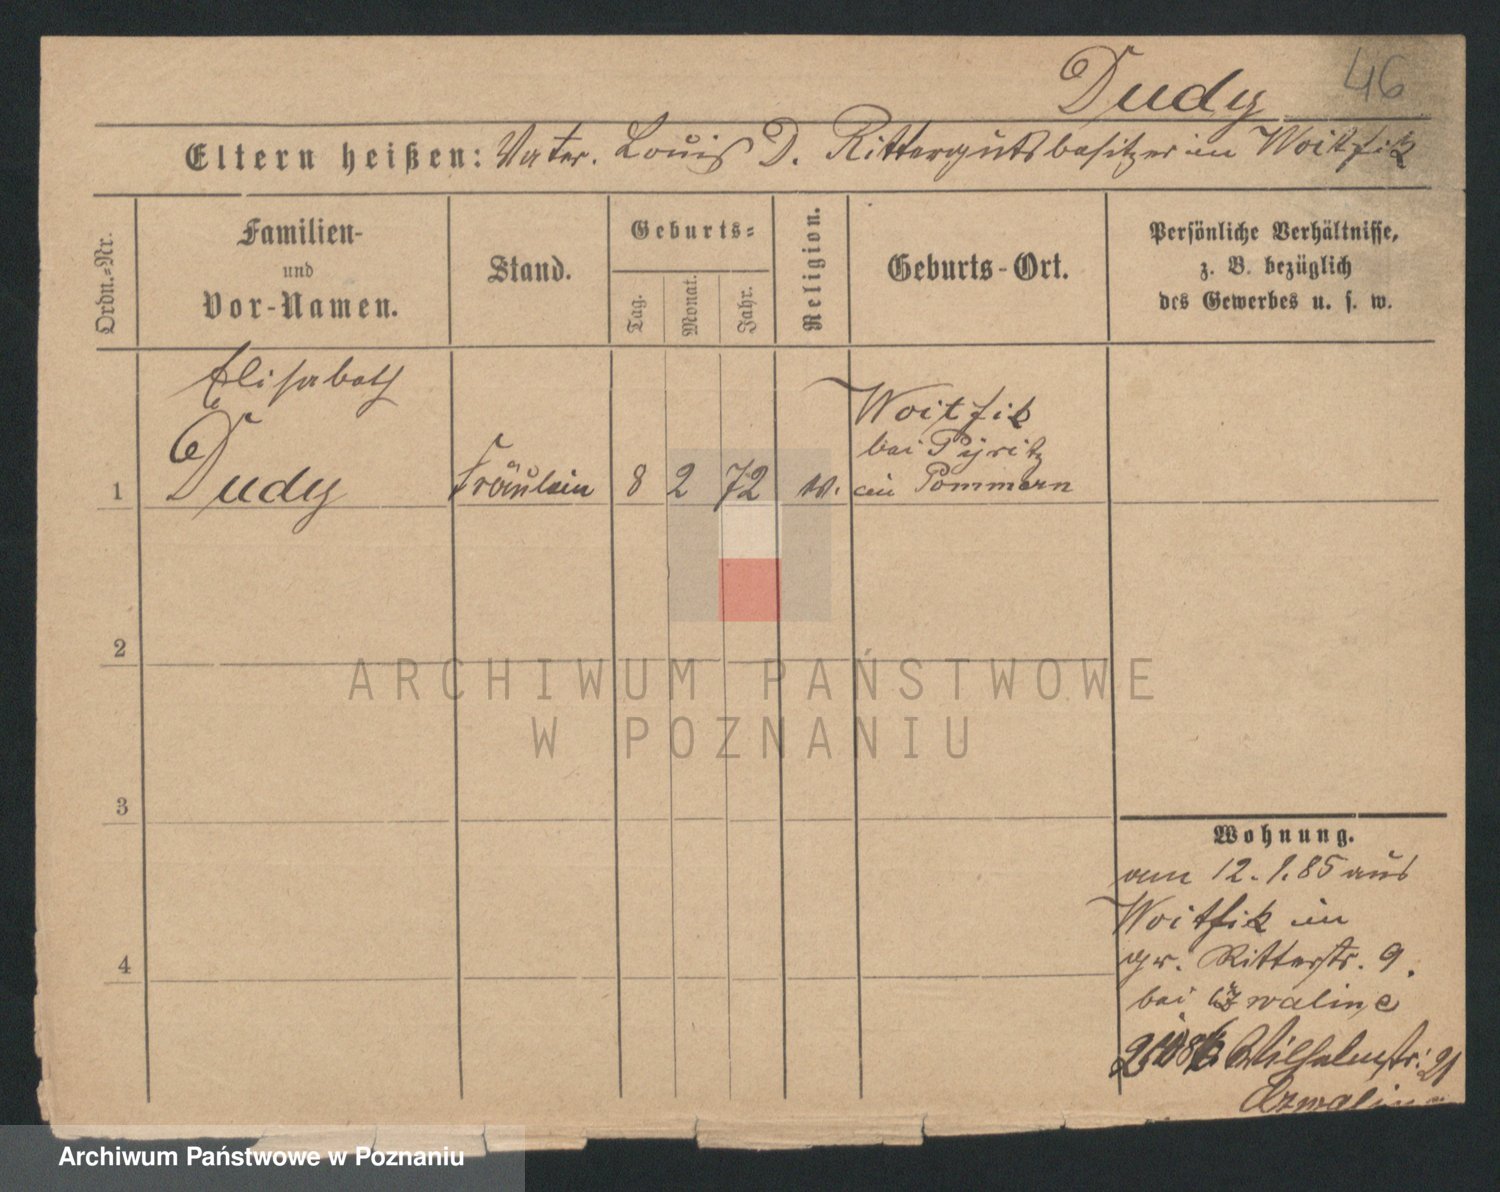 Dudy 46
Eltern heißen: Vater. Louis D. Rittergutsbesitzer in Woitfik
Ordn.=Nr.
Familien-
und
Vor-Namen.
Stand.
Geburts=
Tag.
Monat.
Jahr.
Religion.
Geburts-Ort.
Persönliche Verhältnisse,
z. B. bezüglich
des Gewerbes u. s. w.
Elisabeth
Dudy
Woitfik
bei Pyritz
1 Fräulein 8 2 72 in Pommern
2
3
4
Wohnung.
am 12. 1. 85 aus
Woitfik in
gr. Ritterstr. 9.
bei
Wilhelmstr. 21
ARCHIWUM PAŃSTWOWE
W POZNANIU
Archiwum Państwowe w Poznaniu